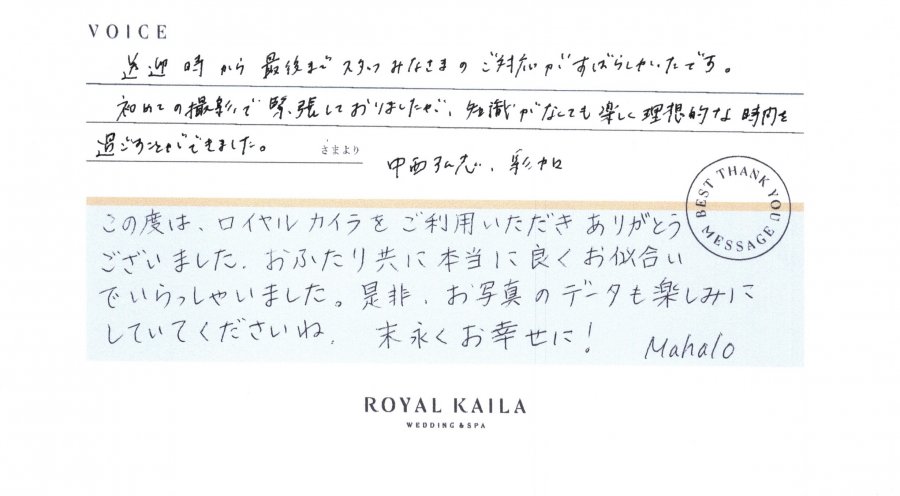 VOICE
送迎時から最後までスタッフみなさまのご対応がすばらしかったです。
初めての撮影で緊張しておりましたが、知識がなくても楽しく理想的な時間を
過ごすことができました。
さまより
中西弘志、彩加
BEST THANK YOU MESSAGE
この度は、ロイヤルカイラをご利用いただきありがとう
ございました。おふたり共に本当に良くお似合い
でいらっしゃいました。是非、お写真のデータも楽しみに
していてくださいね。 末永くお幸せに!
Mahalo
ROYAL KAILA
WEDDING & SPA